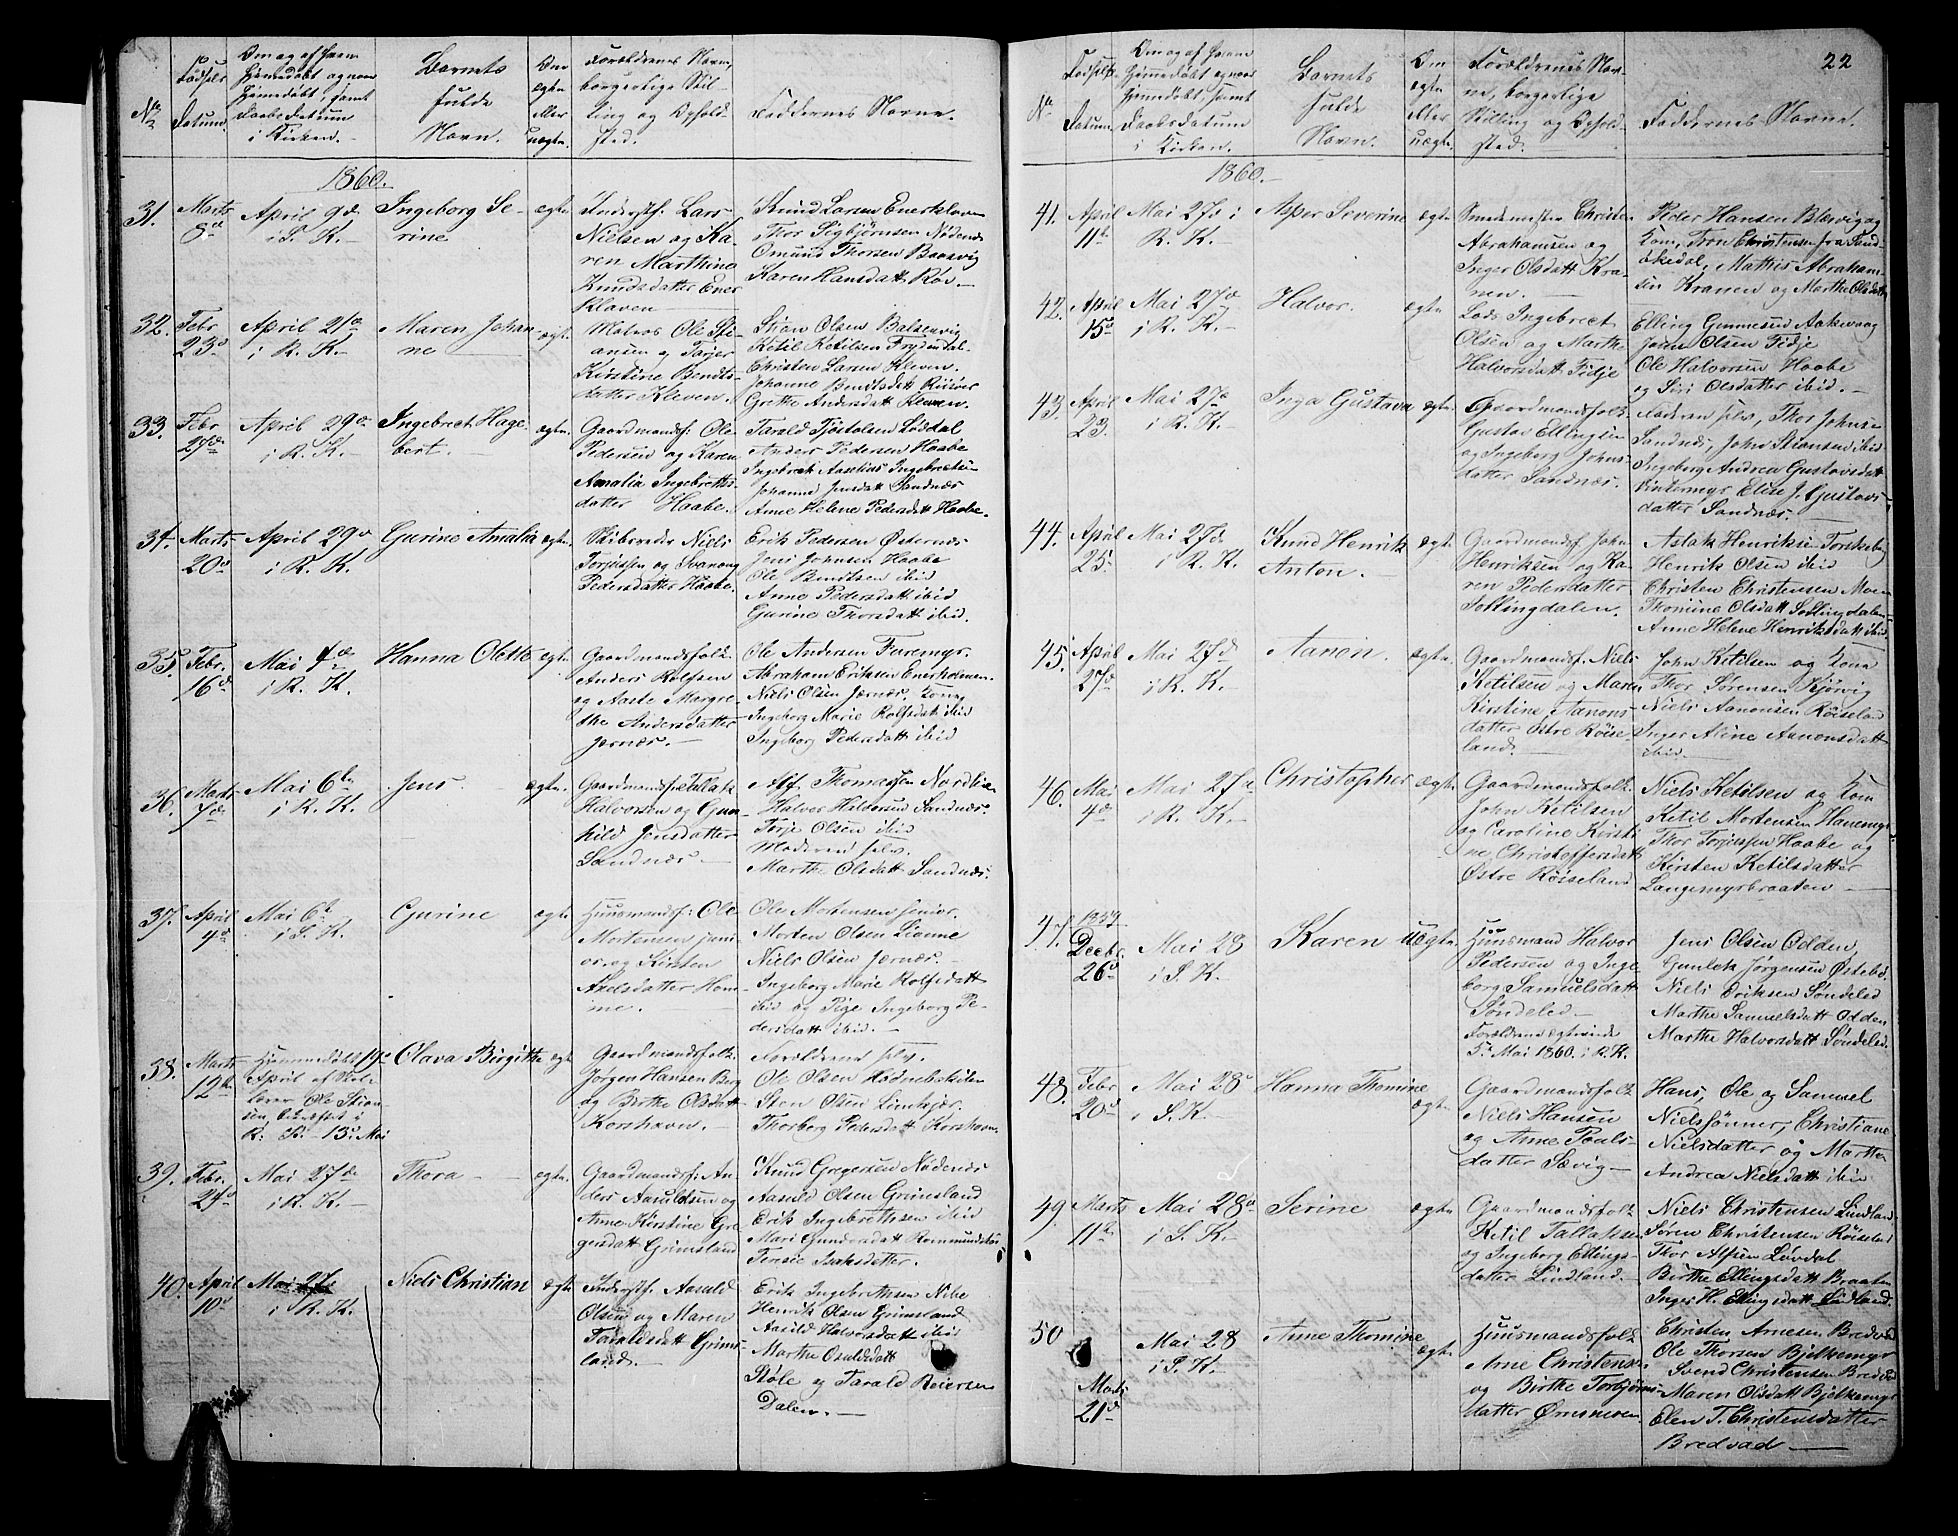 No
Fødsels
Datum.
Om og af hvem
Hjemmedøbt og naar
Hjemmedøbt, samt
Daabs Datum
i Kirken.
Barnets
fulde
Navn.
Om
ægte
eller
uægte.
Forældrenes Navn,
borgerlige Stil-
ling og Ophold-
sted.
Faddernes Navne.
1860.
31.
Marts
8d
April 9d
i S. K.
Ingeborg Se-
rine
ægte
Inderstf. Lars
Nielsen og Ka-
ren Marthine
Knudsdatter Ener
Kloven
Knud Larsen Enerkloven
Thor Sigbjørnsen Nødenes
Omund Thorsen Baasvig
Karen Hansdatt Røv.
32.
Febr
23d
April 21d
i R. K.
Maren Johan-
ne
ægte.
Matros Ole Sti-
ansen og Tarjer
Kirstine Bendts-
datter Kleven.
Stian Olsen Balsenvig
Ketil Ketilsen Frydendal
Christen Larsen Kleven.
Johanne Bendtsdatt Riisøer
Grethe Andersdatt Kleven.
33.
Febr
27d
April 29d
i R. K.
Ingebret Hage-
bert.
ægte.
Gaardmandsf: Ole
Pedersen og Karen
Amalia Ingebretts-
datter Haabe.
Tarald Tjøstolsen Lødtal
Anders Pedersen Haabe
Ingebret Aanelius Ingebretsen
Johanne Jensdatt Sandnæs
Anne Helene Pedersdatt Haabe.
34.
Marts
20d
April 29d
i R. K.
Gurine Amalia
ægte.
Skibsreder Niels
Torjussen og Svanaug
Pedersdatter Haabe.
Erik Pedersen Østernæs
Jens Johnsen Haabe
Ole Bendtsen ibid
Anne Pedersdatt ibid
Gurine Thorsdatt ibid.
35.
Febr.
16d
Mai 4de
i R. K.
Hanna Olette
ægte.
Gaardmandsfolk.
Anders Rolfsen
og Aaste Margre-
the Andersdatter
Jernæs.
Ole Andersen Furemyr.
Abraham Eriksen Enerholmen.
Niels Olsen Jernæs. Kona
Ingeborg Marie Rolfsdatt ibid
Ingeborg Pedersdatt ibid
36.
Marts
7d
Mai 6te
i R. K.
Jens.
ægte.
Gaardmandsf: Tallak
Halvorsen og Gun-
hild Jensdatter
Sandnæs.
Alf Thomassen Nordlien
Halvor Halvorsen Sandnæs.
Torje Olsen ibid
Moderen selv.
Marthe Olsdatt Sandnæs.
37.
April
4d
Mai 6t
i S. K.
Gurine
ægte.
Huusmandsf: Ole
Mortensen juni-
or. og Kirsten
Axelsdatter Hom-
me.
Ole Mortensen senior.
Morten Olsen Lianne
Niels Olsen Jernæs.
Ingeborg Marie Rolfsdatt
ibid og Pige Ingeborg Pe-
dersdatt ibid.
38.
Marts
12te
Hjemmedøbt 19d
April af Skole
lærer Ole Stian-
sen, bekræftet i
R. K. 13d Mai
Olava Birgitte
ægte
Gaardmandsfolk.
Jørgen Hansen Berg
og Birthe Olsdatt
Korshavn.
Forældrene selv.
Ole Olsen Hødnebskilen
Sten Olsen Lindkjær.
Thorborg Pedersdatt Korshavn
39.
Febr.
24d
Mai 27de
i R. K.
Thora
ægte.
Gaardmandsf: An-
ders Aasuldsen og
Anne Kirstine Gre-
gersdatt Grimsland
Knud Gregersen Nødenæs
Aasuld Olsen Grimsland
Erik Ingebrethsen ibid
Mari Gundersdatt
Tensie Isaksdatter.
40.
April
10d
Mai 27
i R. K.
Niels Christian
ægte
Inderstf. Aasuld
Olsen og Maren
Taraldsdatt Grims-
land.
Erik Ingebrethsen Nibe
Henrik Olsen Grimsland
Aasuld Halvorsdatt ibid
Marthe Osuldsdatt
Støle og Tarald Reiersen
Dalen.
22
No
Fødsels
Datum.
Om og af hvem
Hjemmedøbt og naar
Hjemmedøbt, samt
Daabsdatum
i Kirken.
Barnets
fulde
Navn.
Om
ægte
eller
uægte.
Forældrenes Nav-
ne, borgerlige
Stilling og Ophold-
sted.
Faddernes Navne.
1860.
41.
April
11te
Mai 27d i
R. K.
Asper Severine
ægte.
Smedemester Christen
Abrahamsen og
Inger Olsdatt Kra-
nen.
Peder Hansen Blesvig og
Kone, Tron Christensen fra Sand-
økedal, Mathis Abraham-
sen Kranen og Marthe Olsdatt
42.
April
15d
Mai 27d
i R. K.
Halvor.
ægte.
Lods Ingebret
Olsen og Marthe
Halvorsdatt Fidje
Elling Gunnesen Aakvaag
Jens Olsen Fidje
Ole Halvorsen Haabe
og Siri Olsdatter ibid.
43.
April
23.
Mai 27d
i R. K.
Inga Gustava
ægte.
Gaardmandsfolk.
Gustav Ellingsen
og Ingeborg Johns-
datter Sandnæs.
Faderen selv, Thor Johnsen
Sandnæs, John Stiansen ibid
Ingeborg Andrea Gustavsdatt
Vintermyr Elise J. Gustavs-
datter Sandnæs.
44.
April
25.
Mai 27d
i R. K.
Knud Henrik
Anton.
ægte.
Gaardmandsf. John
Henriksen og Ka-
ren Pedersdatter
Sollingdalen.
Aslak Henriksen Torskeberg
Henrik Olsen ibid
Christen Christensen Moen
Thomine Olsdatt Sollingdalen
Anne Helene Henriksdatt ibid.
45.
April
27d
Mai 27d
i R. K.
Aanon.
ægte.
Gaardmandsf. Niels
Ketilsen og Maren
Kirstine Aanons-
datter Østre Røise-
land.
John Ketilsen og Kona
Thor Sørensen Kjørvig
Niels Aanonsen Røiseland
Inger Aline Aanonsdatt
ibid.
46.
Mai
4d
Mai 27d
i R. K.
Christopher
ægte.
Gaardmandsfolk.
John Ketilsen
og Caroline Kirsti-
ne Christoffersdatt
Østre Røiseland
Niels Ketilsen og Kone
Ketil Mortensen Hanemyr
Thor Torjussen Haabe og
Kirsten Ketilsdatter
Langemyrbraaten
47.
1859
Decbr.
26d
Mai 28
i S. K.
Karen
uægte.
Huusmand Halvor
Pedersen og Inge-
borg Samuelsdatt
Søndeled.
Forældrene ægteviede
5te Mai 1860. i R. K.
Jens Olsen Odden,
Gunlek Jørgensen Østebø.
Niels Eriksen Søndeled
Marthe Samuelsdatt Odden
Marthe Halvorsdatt Søndeled.
48.
Febr
20d
Mai 28d
i S. K.
Hanna Thomine
ægte.
Gaardmandsfolk
Niels Hansen
og Anne Pouls-
datter Sævig
Hans, Ole og Samuel
Nielssønner, Christiane
Nielsdatter og Marthe
Andrea Nielsdatt ibid
49.
Marts
11te
Mai 28d
i S. K.
Serine
ægte
Gaardmandsfolk
Ketil Tallaksen
og Ingeborg Ellings-
datter Lindland.
Niels Christensen Lindland
Søren Christensen Røiseland
Thor Alfsen Løvdal
Birthe Ellingsdatt Braaten
Inger H. Ellingsdatt Lindland.
50
Marts
21d
Mai 28
i S. K.
Anne Thomine
ægte.
Huusmandsfolk
Arne Christensen
og Birthe Torbjørns-
datter Ørnsneven.
Christen Arnesen Bredvad
Ole Thorsen Bjelkemyr
Svend Christensen Bredvad
Maren Olsdatt Bjelkemyr
Elen T. Christensdatter
Bredvad